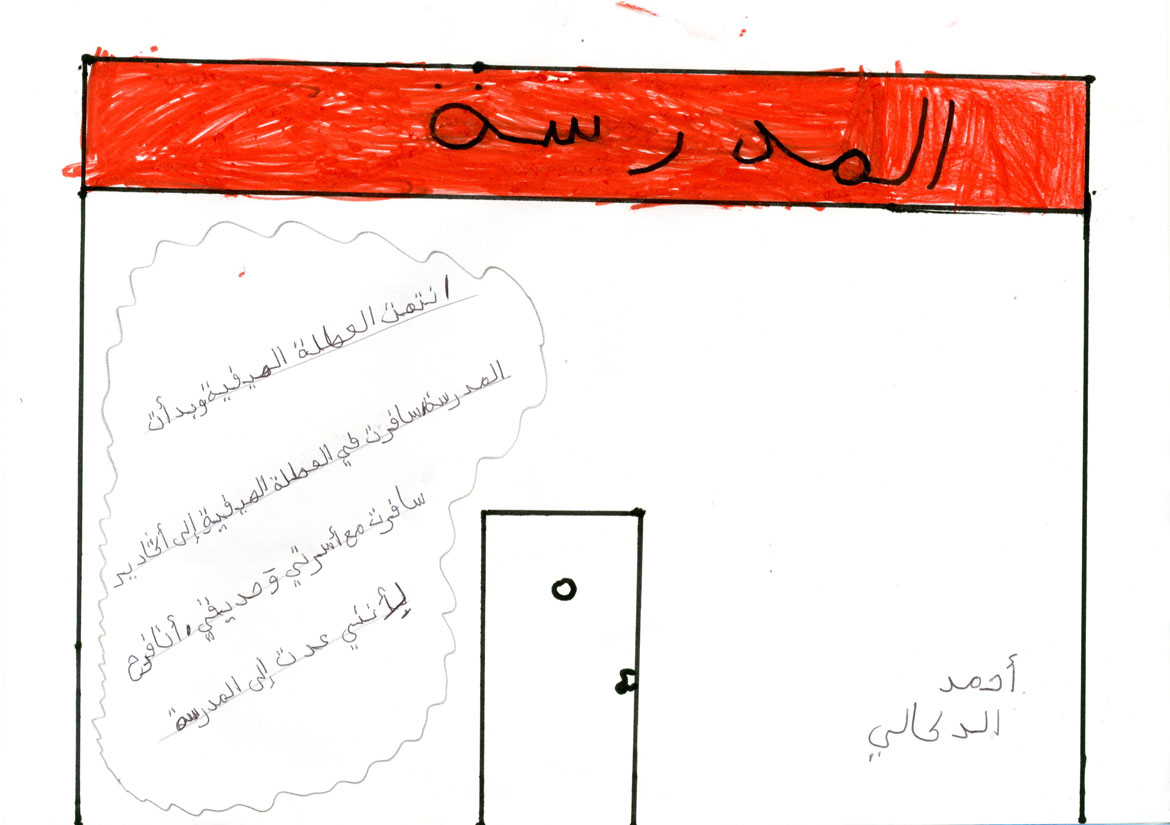 المدرسة
انتهت العطلة الصيفية وبدأت
المدرسة، سافرت في العطلة الصيفية إلى أكادير
سافرت مع أسرتي وَ صديقي. أنا فرح
لأنني عدت إلى المدرسة
أحمد
الدكالي